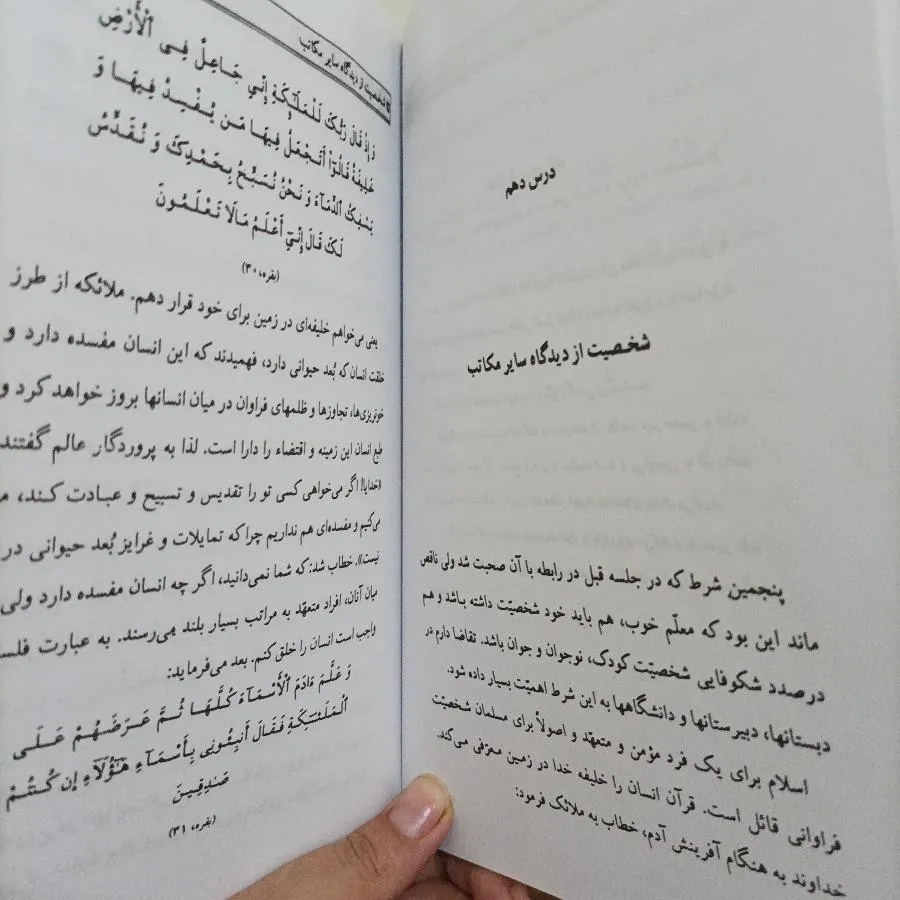 درس دهم
شخصیت از دیدگاه سایر مکاتب
پنجمین شرط که در جلسه قبل در رابطه با آن صحبت شد ولی ناقص
ماند این بود که معلّم خوب، هم باید خود شخصیّت داشته باشد و هم
درصدد شکوفایی شخصیّت کودک، نوجوان و جوان باشد. تقاضا دارم در
دبستانها، دبیرستانها و دانشگاهها به این شرط اهمیّت بسیار داده شود.
اسلام برای یک فرد مؤمن و متعهّد و اصولاً برای مسلمان شخصیّت
فراوانی قائل است. قرآن انسان را خلیفه خدا در زمین معرّفی می‌کند.
خداوند به هنگام آفرینش آدم، خطاب به ملائک فرمود:
شخصیت از دیدگاه سایر مکاتب
وَ إِذْ قَالَ رَبُّكَ لِلْمَلَـٰٓئِكَةِ إِنِّي جَاعِلٌ فِي ٱلْأَرْضِ
خَلِيفَةً قَالُوٓاْ أَتَجْعَلُ فِيهَا مَن يُفْسِدُ فِيهَا وَ
يَسْفِكُ ٱلدِّمَآءَ وَ نَحْنُ نُسَبِّحُ بِحَمْدِكَ وَ نُقَدِّسُ
لَكَ قَالَ إِنِّيٓ أَعْلَمُ مَا لَا تَعْلَمُونَ
(بقره، ۳۰)
یعنی می‌خواهم خلیفه‌ای در زمین برای خود قرار دهم. ملائکه از طرز
خلقت انسان که بُعد حیوانی دارد، فهمیدند که این انسان مفسده دارد و
خونریزی‌ها، تجاوزها و ظلمهای فراوان در میان انسانها بروز خواهد کرد و
طبع انسان این زمینه و اقتضاء را دارا است. لذا به پروردگار عالم گفتند
«خدایا! اگر می‌خواهی کسی تو را تقدیس و تسبیح و عبادت کند،
می‌کنیم و مفسده‌ای هم نداریم چرا که تمایلات و غرایز بُعد حیوانی در
نیست». خطاب شد: که شما نمی‌دانید، اگر چه انسان مفسده دارد ولی
میان آنان، افراد متعهّد به مراتب بسیار بلند می‌رسند. به عبارت
واجب است انسان را خلق کنم. بعد می‌فرماید:
وَ عَلَّمَ ءَادَمَ ٱلْأَسْمَآءَ كُلَّهَا ثُمَّ عَرَضَهُمْ عَلَى
ٱلْمَلَـٰٓئِكَةِ فَقَالَ أَنۢبِـُٔونِي بِأَسْمَآءِ هَـٰٓؤُلَآءِ إِن كُنتُمْ
صَـٰدِقِينَ
(بقره، ۳۱)